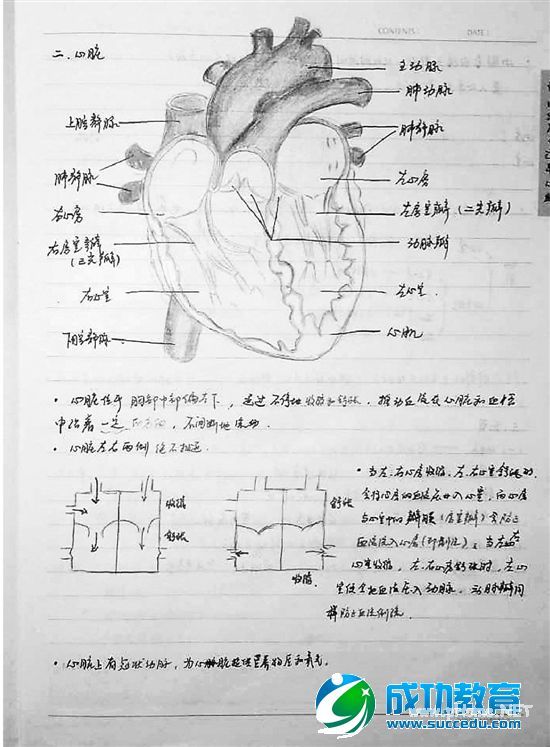 CONTENTS: DATE:
二.心脏
主动脉
肺动脉
上腔静脉
肺静脉
肺静脉
左心房
右心房
左房室瓣(二尖瓣)
右房室瓣
(三尖瓣)
动脉瓣
右心室
左心室
下腔静脉
心肌
· 心脏位于胸部中部偏左下,通过不停地收缩和舒张,推动血液在心脏和血管
中沿着一定的方向,不间断地流动.
· 心脏左右两侧绝不相通.
收缩
舒张
舒张
收缩
· 当左.右心房收缩,左.右心室舒张时
会将心房的血液压入心室,而心房
与心室中的瓣膜(房室瓣)会防止
血液流入心房(即倒流).当左
心室收缩,左.右心房舒张时,左心
室便会把血液压入动脉.动脉瓣
防止血液倒流.
· 心脏上有冠状动脉,为心脏提供营养物质和氧气.
成功教育
www.succedu.com